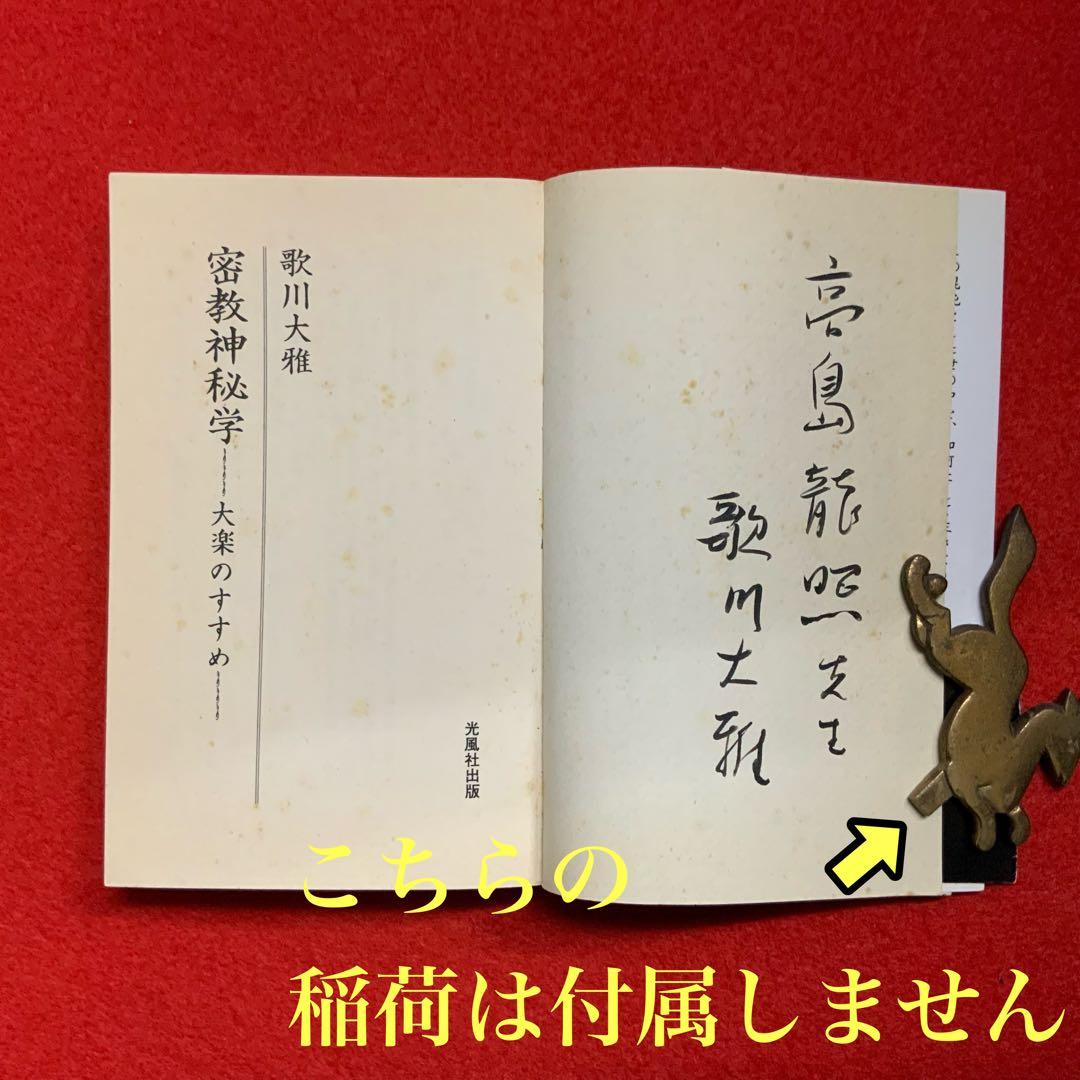 高島龍照先生
歌川大雅
歌川大雅
密教神秘学
大楽のすすめ
光風社出版
こちらの
稲荷は付属しません